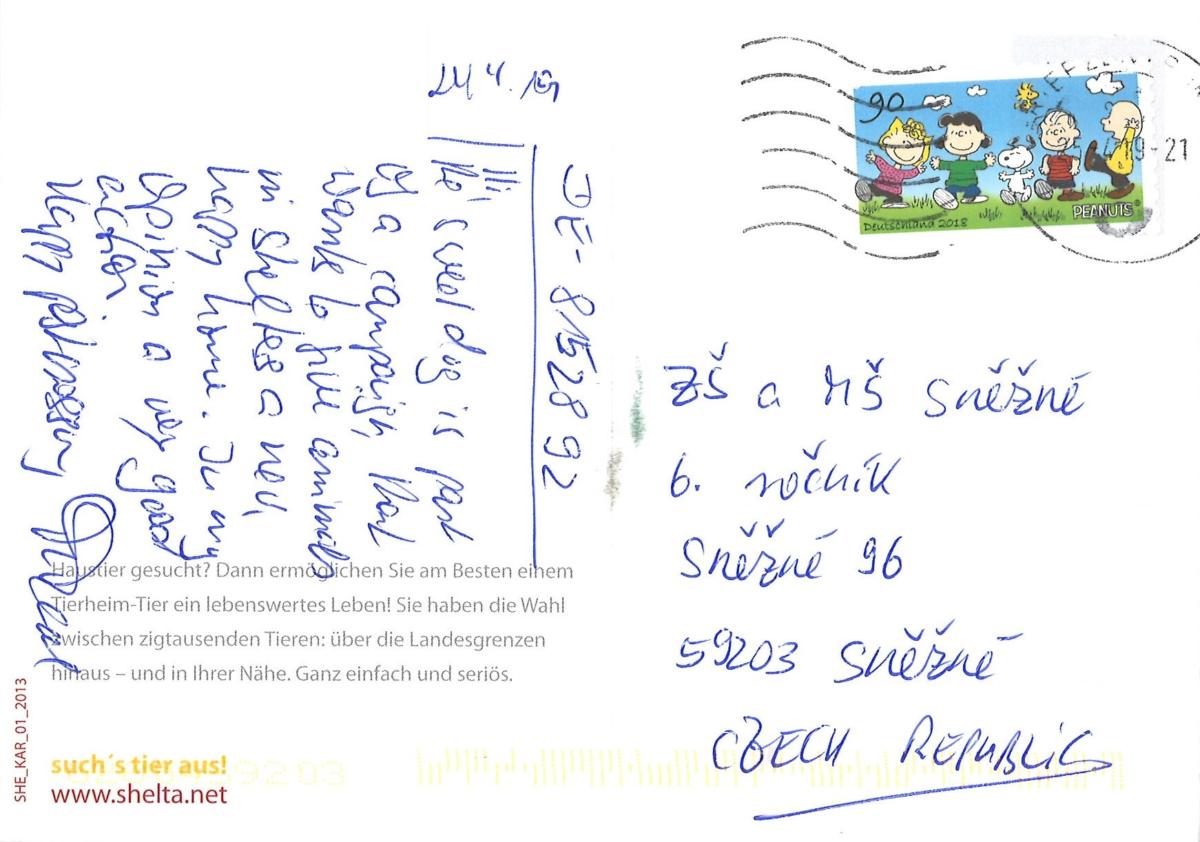 24.4.19
DE-8152892
Hi!
No sweet dog is part
of a campaign, that
wants to give animals
in shelter a new,
happy home. In my
opinion a very good
action.
Happy postcrossing
90
Deutschland 2018
PEANUTS
19-21
ZŠ a MŠ Sněžné
6. ročník
Sněžné 96
59203 Sněžné
CZECH REPUBLIC
Haustier gesucht? Dann ermöglichen Sie am Besten einem
Tierheim-Tier ein lebenswertes Leben! Sie haben die Wahl
zwischen zigtausenden Tieren: über die Landesgrenzen
hinaus – und in Ihrer Nähe. Ganz einfach und seriös.
SHE_KAR_01_2013
such´s tier aus!
www.shelta.net